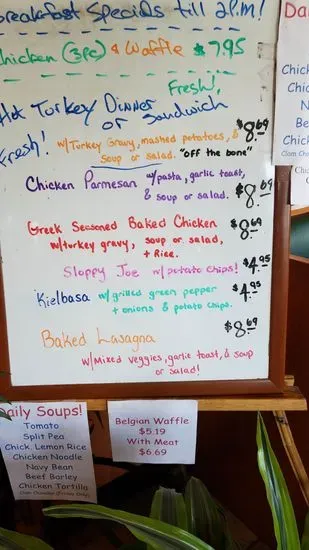 Breakfast Specials till 2p.m!
Chicken (3pc) & Waffle $7.95
Fresh!
Hot Turkey Dinner
or Sandwich
Fresh!
w/Turkey Gravy, mashed potatoes, & $8.69
soup or salad. "off the bone"
Chicken Parmesan w/pasta, garlic toast, $8.69
& soup or salad.
Greek Seasoned Baked Chicken $8.69
w/turkey gravy, soup or salad,
+ Rice.
Sloppy Joe w/potato chips! $4.95
Kielbasa w/grilled green pepper $4.95
+ onions & potato chips.
Baked Lasagna $8.69
w/Mixed veggies, garlic toast, & soup
or salad!
Daily Soups!
Tomato
Split Pea
Chick. Lemon Rice
Chicken Noodle
Navy Bean
Beef Barley
Chicken Tortilla
Clam Chowder (Friday Only)
Belgian Waffle
$5.19
With Meat
$6.69
Da
Chick
Chic
N
Be
Chic
Clam Chow